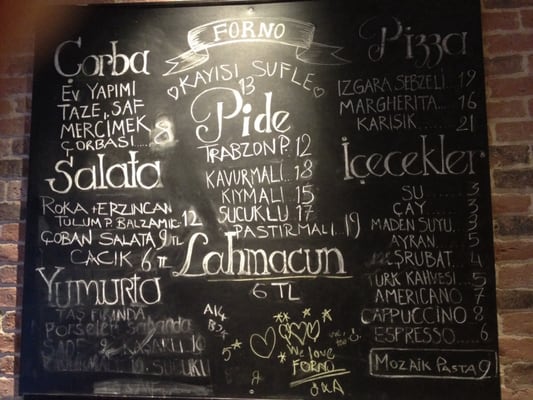 FORNO
KAYISI SUFLE
13
Çorba
EV YAPIMI
TAZE, SAF
MERCİMEK
ÇORBASI..... 8
Salata
ROKA + ERZİNCAN
TULUM P. BALZAMİK 12
ÇOBAN SALATA 9 TL
CACIK 6 TL
Yumurta
TAŞ FIRINDA
Porselen sahanda
SADE 8 KAŞARLI 10
10 SUCUKLU
Pide
TRABZON P. 12
KAVURMALI.. 18
KIYMALI.. 15
SUCUKLU 17
PASTIRMALI.. 19
Lahmacun
6 TL
We love
FORNO
Pizza
IZGARA SEBZELİ 19
MARGHERITA.... 16
KARIŞIK........ 21
İçecekler
SU ........ 3
ÇAY ........ 3
MADEN SUYU. 3
AYRAN ..... 5
ŞRUBAT.. 4
TÜRK KAHVESİ 5
AMERICANO 7
CAPPUCCİNO 8
ESPRESSO.... 6
MOZAİK PASTA 9